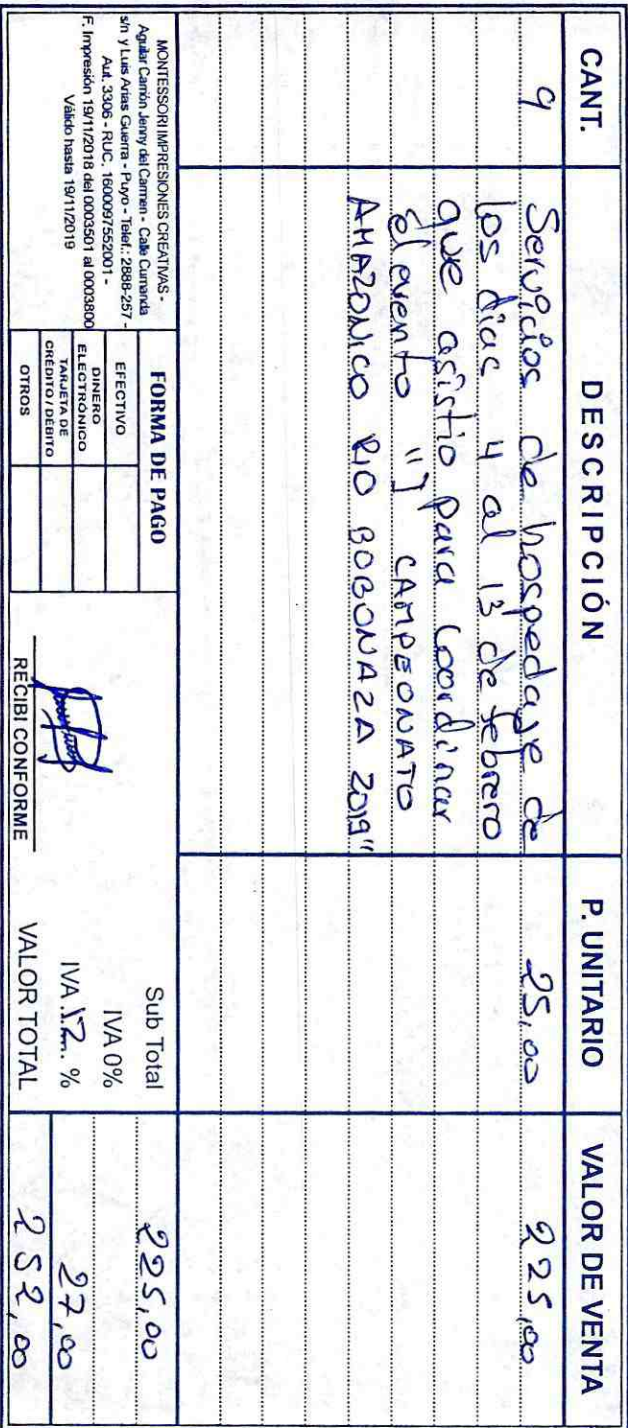 CANT. DESCRIPCIÓN P. UNITARIO VALOR DE VENTA
9 Servicios de hospedaje de 25,00 225,00
los dias 4 al 13 de febrero
que asistio para coordinar
el evento "I CAMPEONATO
AMAZONICO RIO BOBONAZA 2019"
MONTESSORI IMPRESIONES CREATIVAS -
Aguilar Carrión Jenny del Carmen - Calle Cumanda
s/n y Luis Arias Guerra - Puyo - Telef.: 2888-257 -
Aut. 3306 - RUC. 1600097552001 -
F. Impresión 19/11/2018 del 0003501 al 0003800
Válido hasta 19/11/2019
FORMA DE PAGO
EFECTIVO
DINERO
ELECTRÓNICO
TARJETA DE
CRÉDITO / DÉBITO
OTROS
RECIBI CONFORME
Sub Total 225,00
IVA 0%
IVA 12 % 27,00
VALOR TOTAL 252,00